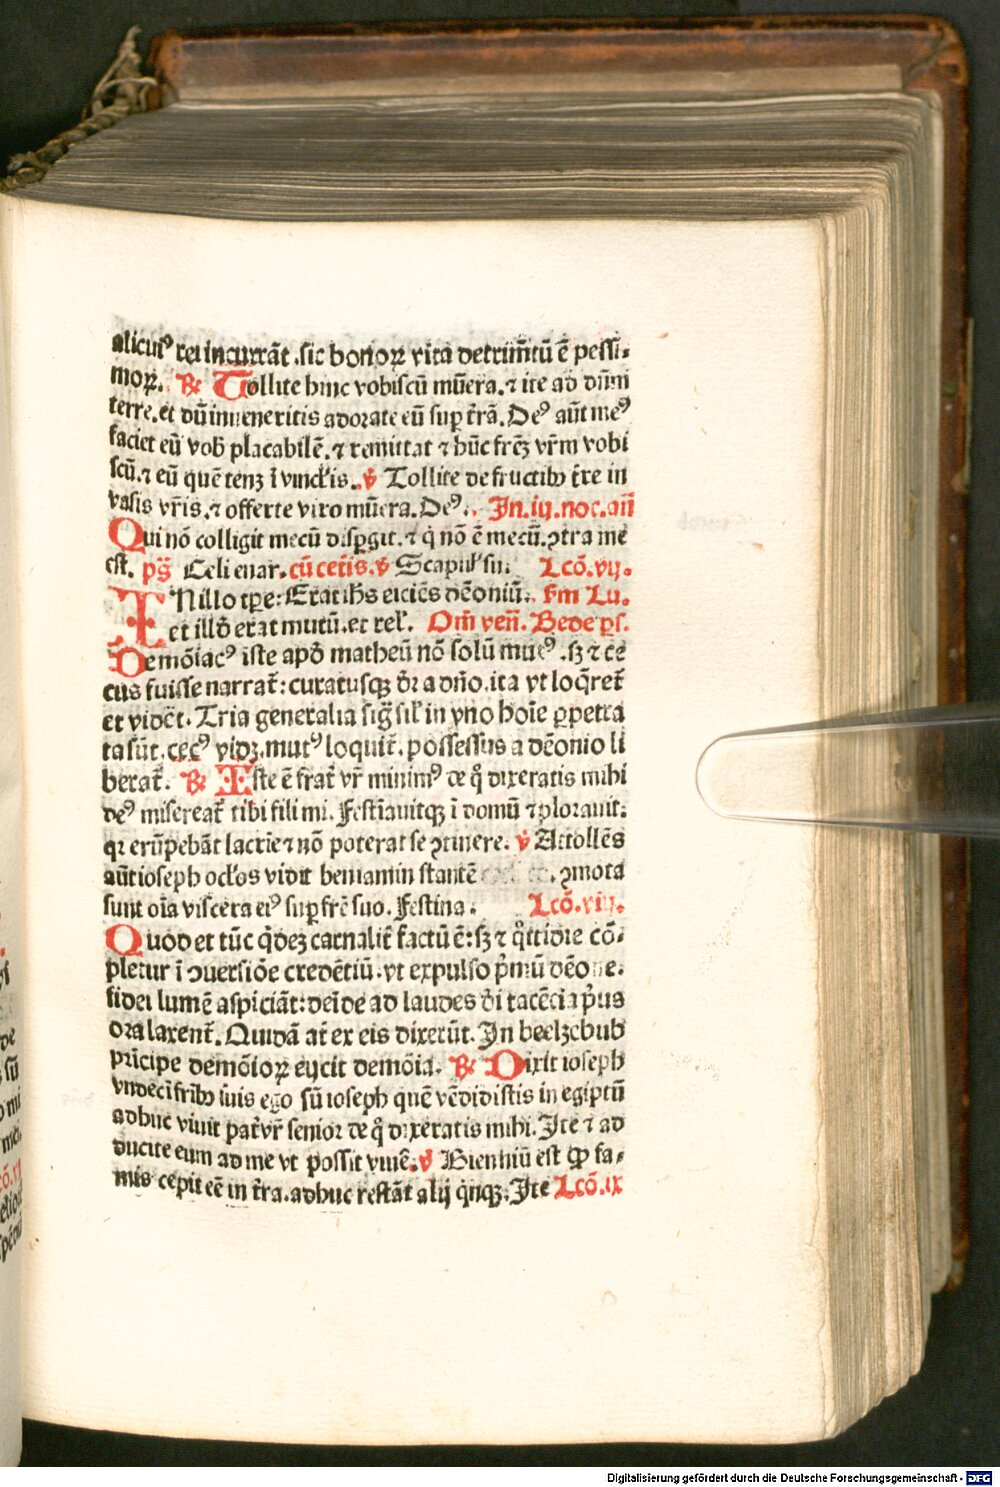 alicuiꝰ rei incurrãt .sic bonoꝝ vita detrim̃tũ ẽ pessi-
moꝝ. ℟ Tollite hinc vobiscũ mũera.⁊ ite ad dñm
terre.et dũ inueneritis adorate eũ suꝑ t̃rã. Deꝰ aũt meꝰ
faciet eũ vob̃ placabilẽ.⁊ remittat ⁊ hũc fr̃eꝫ vr̃m vobi
scũ.⁊ eũ quẽ tenꝫ ĩ vincl̃is. ℣ Tollite de fructibꝰ t̃re in
vasis vr̃is.⁊ offerte viro mũera. Deꝰ. In.iij.noc.añ
Qui nõ colligit mecũ disꝑgit.⁊ q̃ nõ ẽ mecũ.ꝯtra me
est. ps̃ Celi enar. cũ cet̃is.℣ Scapul̃ sui. Lcõ.vij.
IN illo tp̃e: Erat ih̃s eiciẽs dẽoniũ. Sm Lu.
et ill̃d erat mutũ.et rel̃. Om̃ veñ. Bede p̃s.
Demõiacꝰ iste apd̃ matheũ nõ solũ mutꝰ .sꝫ ⁊ ce
cus fuisse narrat̃: curatusqꝫ d̃r a dño.ita vt loq̃ret̃
et videt̃. Tria generalia sig̃ sil̃ in vno hoĩe ꝑpetra
ta sũt. cecꝰ vidꝫ. mutꝰ loquit̃. possessus a dẽonio li
berat̃. ℟ Iste ẽ frat̃ vr̃ minimꝰ de q̃ dixeratis mihi
deꝰ misereat̃ tibi fili mi. Festĩauitqꝫ ĩ domũ ⁊ plorauit:
qꝛ erũpebãt lacrĩe ⁊ nõ poterat se ꝯtinere. ℣ Attollẽs
aũt ioseph ocl̃os vidit beniamin stantẽ ꝯmota
sunt oĩa viscera eiꝰ suꝑ fr̃e suo. Festina. Lcõ.viij.
Quod et tũc q̃deꝫ carnalit̃ factũ ẽ: sꝫ ⁊ q̃ttidie cõ-
pletur ĩ ꝯuersiõe credẽtiũ.vt expulso p̃mũ dẽone.
fidei lumẽ aspiciãt: deĩde ad laudes d̃i tacẽcia p̃us
ora laxent̃. Quidã at̃ ex eis dixerũt. In beelzebub
prĩcipe demõioꝝ eijcit demõia. ℟ Dixit ioseph
vndecĩ frib̃ suis ego sũ ioseph quẽ vẽdidistis in egiptũ
adhuc viuit pat̃ vr̃ senior de q̃ dixeratis mihi. Ite ⁊ ad
ducite eum ad me vt possit viuẽ. ℣ Bienniũ est ꝙ fa-
mis cepit eẽ in t̃ra.adhuc restãt alij q̃nqꝫ. Ite Lcõ.ix
Digitalisierung gefördert durch die Deutsche Forschungsgemeinschaft - DFG